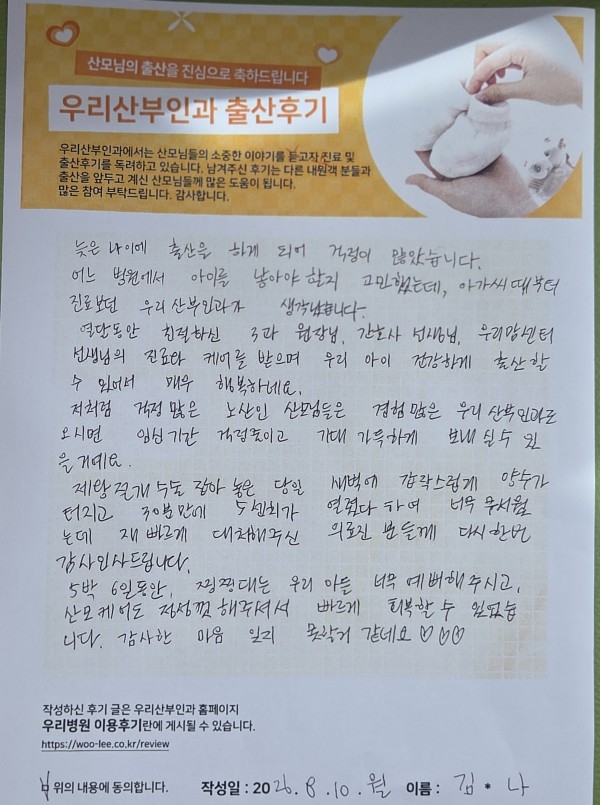 산모님의 출산을 진심으로 축하드립니다
우리산부인과 출산후기
우리산부인과에서는 산모님들의 소중한 이야기를 듣고자 진료 및
출산후기를 독려하고 있습니다. 남겨주신 후기는 다른 내원객 분들과
출산을 앞두고 계신 산모님들께 많은 도움이 됩니다.
많은 참여 부탁드립니다. 감사합니다.
늦은 나이에 출산을 하게 되어 걱정이 많았습니다.
어느 병원에서 아이를 낳아야 할지 고민했는데, 아가씨 때부터
진료보던 우리산부인과가 생각났습니다.
열달동안 친절하신 3과 원장님, 간호사 선생님, 우리맘센터
선생님의 진료와 케어를 받으며 우리 아이 건강하게 출산할
수 있어서 매우 행복하네요.
저처럼 걱정 많은 노산인 산모님들은 경험많은 우리산부인과로
오시면 임신기간 걱정줄이고 기대 가득하게 보내실 수 있
을거예요.
제왕절개 수술 잡아 놓은 당일 새벽에 갑작스럽게 양수가
터지고 30분만에 5센치가 열렸다 하여 너무 무서웠
는데 재빠르게 대처해주신 의료진 분들께 다시한번
감사인사드립니다.
5박 6일동안, 찡찡대는 우리 아들 너무 예뻐해주시고,
산모케어도 정성껏 해주셔서 빠르게 회복할 수 있었습
니다. 감사한 마음 잊지 못할거 같네요 ♡♡♡
작성하신 후기 글은 우리산부인과 홈페이지
우리병원 이용후기란에 게시될 수 있습니다.
https://woo-lee.co.kr/review
위의 내용에 동의합니다. 작성일 : 2026. 8. 10. 월 이름 : 김 * 나